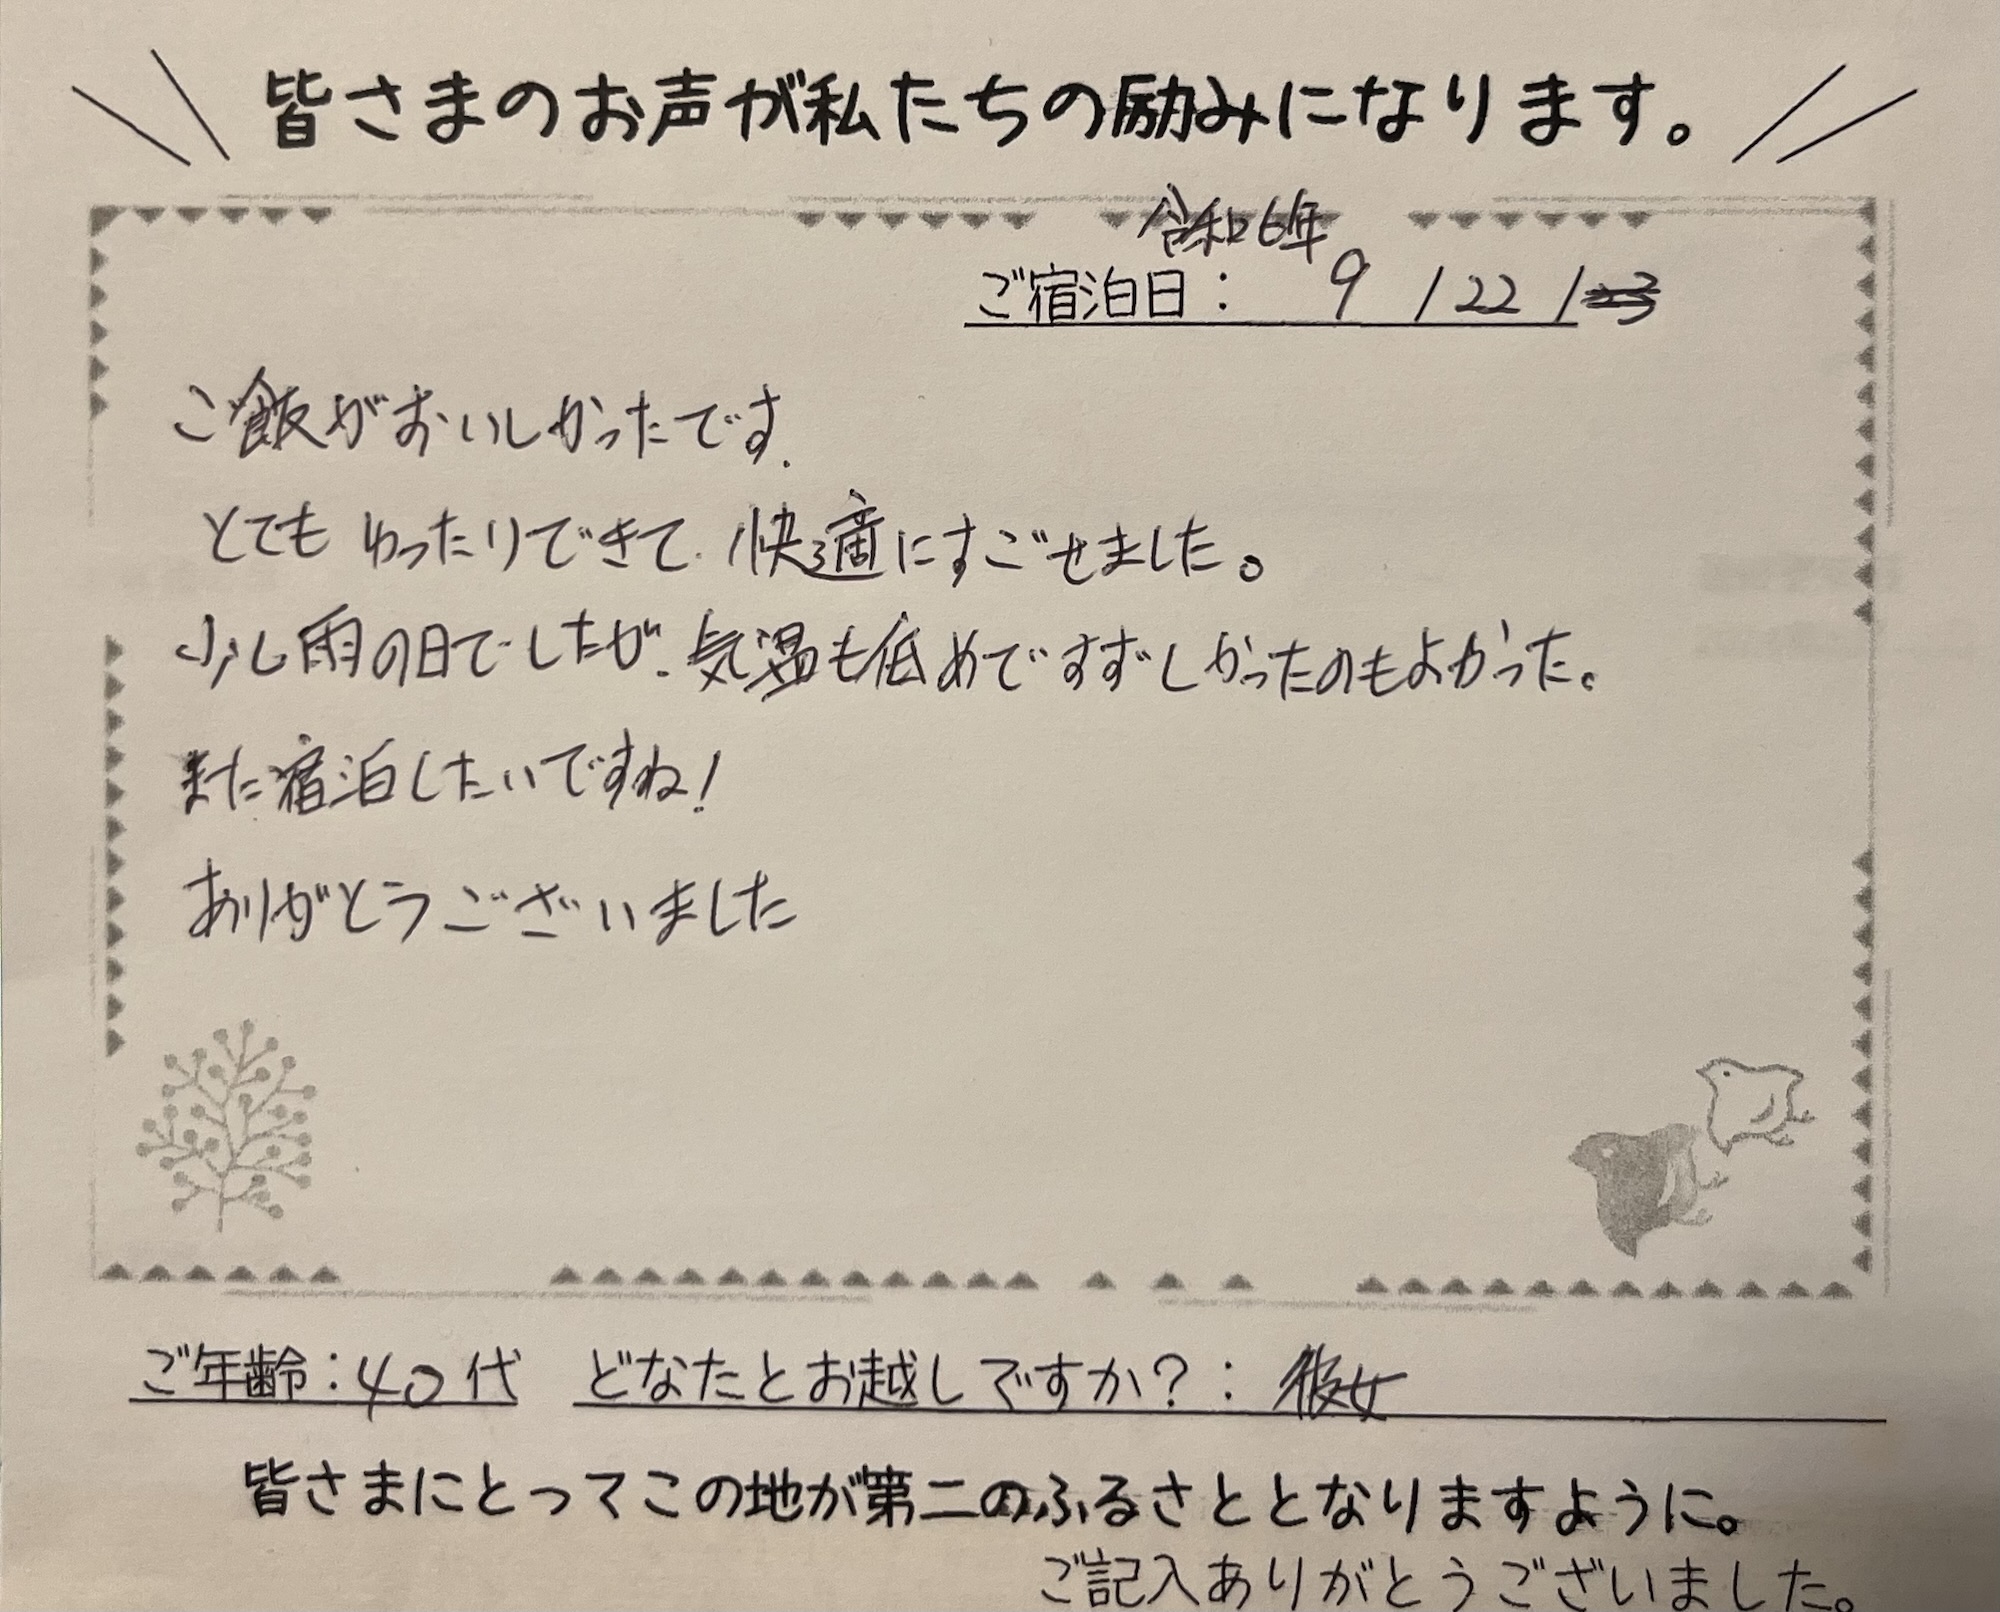 皆さまのお声が私たちの励みになります。
令和6年
ご宿泊日： 9 / 22 /
ご飯がおいしかったです.
とても ゆったりできて. 快適にすごせました。
少し雨の日でしたが、気温も低めですずしかったのもよかった。
また宿泊したいですね!
ありがとうございました
ご年齢：40代 どなたとお越しですか？： 彼女
皆さまにとってこの地が第二のふるさととなりますように。
ご記入ありがとうございました。